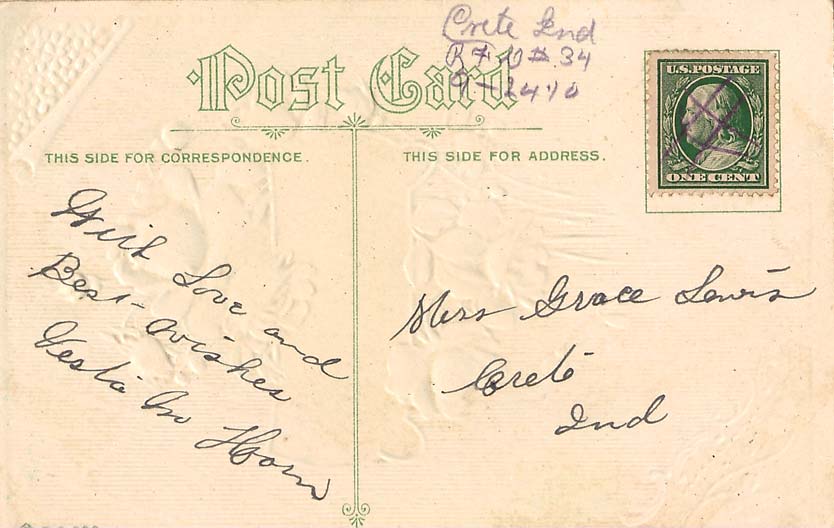 Crete Ind
R F D # 34
9-24 10
Post Card
U.S. POSTAGE
ONE CENT
THIS SIDE FOR CORRESPONDENCE.
THIS SIDE FOR ADDRESS.
With Love and
Best- wishes
Vesta M Horn
Miss Grace Lewis
Crete
Ind